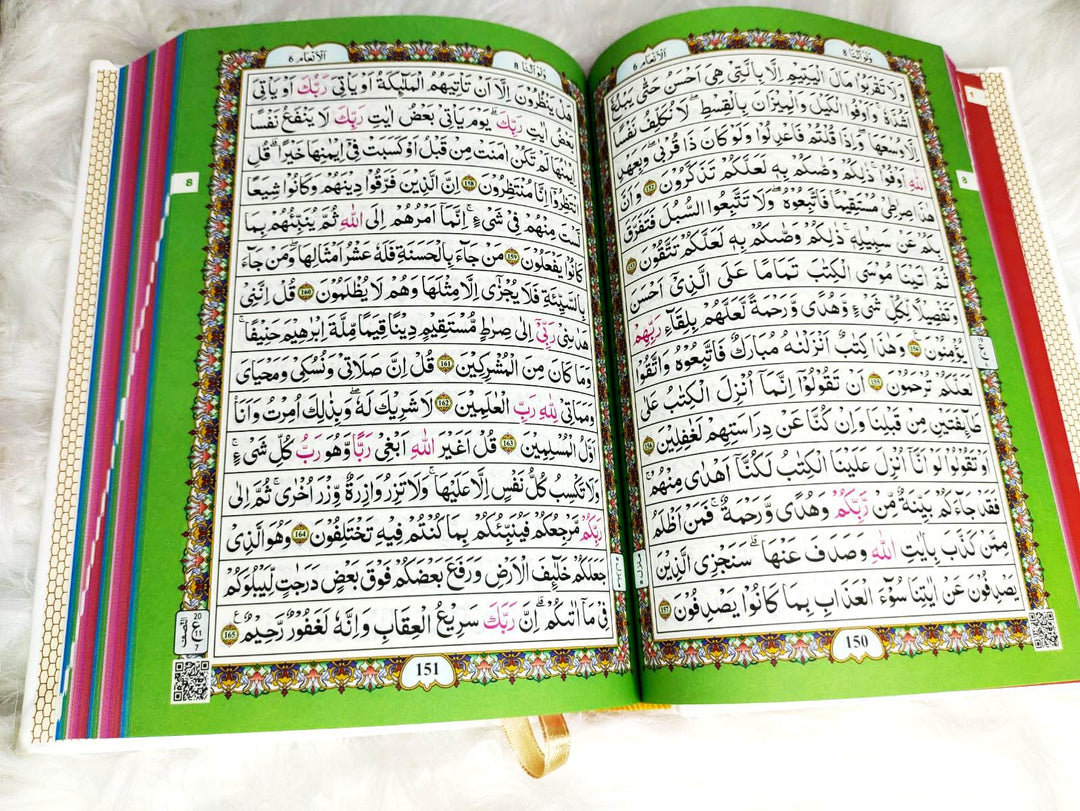 وَلَوْ اَنَّنَا 8
اَلْاَنْعَام 6
وَلَا تَقْرَبُوْا مَالَ الْيَتِيْمِ اِلَّا بِالَّتِيْ هِيَ اَحْسَنُ حَتّٰى يَبْلُغَ
اَشُدَّهٗ ۚ وَاَوْفُوا الْكَيْلَ وَالْمِيْزَانَ بِالْقِسْطِ ۚ لَا نُكَلِّفُ نَفْسًا
اِلَّا وُسْعَهَا ۚ وَاِذَا قُلْتُمْ فَاعْدِلُوْا وَلَوْ كَانَ ذَا قُرْبٰى ۚ وَبِعَهْدِ
اللّٰهِ اَوْفُوْا ؕ ذٰلِكُمْ وَصّٰىكُمْ بِهٖ لَعَلَّكُمْ تَذَكَّرُوْنَ 152 وَاَنَّ
هٰذَا صِرَاطِيْ مُسْتَقِيْمًا فَاتَّبِعُوْهُ ۚ وَلَا تَتَّبِعُوا السُّبُلَ فَتَفَرَّقَ
بِكُمْ عَنْ سَبِيْلِهٖ ؕ ذٰلِكُمْ وَصّٰىكُمْ بِهٖ لَعَلَّكُمْ تَتَّقُوْنَ 153
ثُمَّ اٰتَيْنَا مُوْسَى الْكِتٰبَ تَمَامًا عَلَى الَّذِيْٓ اَحْسَنَ
وَتَفْصِيْلًا لِّكُلِّ شَيْءٍ وَّهُدًى وَّرَحْمَةً لَّعَلَّهُمْ بِلِقَآءِ رَبِّهِمْ
يُؤْمِنُوْنَ 154 وَهٰذَا كِتٰبٌ اَنْزَلْنٰهُ مُبٰرَكٌ فَاتَّبِعُوْهُ وَاتَّقُوْا
لَعَلَّكُمْ تُرْحَمُوْنَ 155 اَنْ تَقُوْلُوْٓا اِنَّمَآ اُنْزِلَ الْكِتٰبُ عَلٰى
طَآئِفَتَيْنِ مِنْ قَبْلِنَا وَاِنْ كُنَّا عَنْ دِرَاسَتِهِمْ لَغٰفِلِيْنَ 156
اَوْ تَقُوْلُوْا لَوْ اَنَّآ اُنْزِلَ عَلَيْنَا الْكِتٰبُ لَكُنَّآ اَهْدٰى مِنْهُمْ ۚ
فَقَدْ جَآءَكُمْ بَيِّنَةٌ مِّنْ رَّبِّكُمْ وَهُدًى وَّرَحْمَةٌ ۚ فَمَنْ اَظْلَمُ
مِمَّنْ كَذَّبَ بِاٰيٰتِ اللّٰهِ وَصَدَفَ عَنْهَا ؕ سَنَجْزِي الَّذِيْنَ
يَصْدِفُوْنَ عَنْ اٰيٰتِنَا سُوْٓءَ الْعَذَابِ بِمَا كَانُوْا يَصْدِفُوْنَ 157
150
8
وَلَوْ اَنَّنَا 8
اَلْاَنْعَام 6
هَلْ يَنْظُرُوْنَ اِلَّآ اَنْ تَاْتِيَهُمُ الْمَلٰٓئِكَةُ اَوْ يَاْتِيَ رَبُّكَ اَوْ يَاْتِيَ
بَعْضُ اٰيٰتِ رَبِّكَ ؕ يَوْمَ يَاْتِيْ بَعْضُ اٰيٰتِ رَبِّكَ لَا يَنْفَعُ نَفْسًا
اِيْمَانُهَا لَمْ تَكُنْ اٰمَنَتْ مِنْ قَبْلُ اَوْ كَسَبَتْ فِيْٓ اِيْمَانِهَا خَيْرًا ؕ قُلِ
انْتَظِرُوْٓا اِنَّا مُنْتَظِرُوْنَ 158 اِنَّ الَّذِيْنَ فَرَّقُوْا دِيْنَهُمْ وَكَانُوْا شِيَعًا
لَّسْتَ مِنْهُمْ فِيْ شَيْءٍ ؕ اِنَّمَآ اَمْرُهُمْ اِلَى اللّٰهِ ثُمَّ يُنَبِّئُهُمْ بِمَا
كَانُوْا يَفْعَلُوْنَ 159 مَنْ جَآءَ بِالْحَسَنَةِ فَلَهٗ عَشْرُ اَمْثَالِهَا ۚ وَمَنْ جَآءَ
بِالسَّيِّئَةِ فَلَا يُجْزٰٓى اِلَّا مِثْلَهَا وَهُمْ لَا يُظْلَمُوْنَ 160 قُلْ اِنَّنِيْ
هَدٰىنِيْ رَبِّيْٓ اِلٰى صِرَاطٍ مُّسْتَقِيْمٍ ۚ دِيْنًا قِيَمًا مِّلَّةَ اِبْرٰهِيْمَ حَنِيْفًا ۚ
وَمَا كَانَ مِنَ الْمُشْرِكِيْنَ 161 قُلْ اِنَّ صَلَاتِيْ وَنُسُكِيْ وَمَحْيَايَ
وَمَمَاتِيْ لِلّٰهِ رَبِّ الْعٰلَمِيْنَ 162 لَا شَرِيْكَ لَهٗ ۚ وَبِذٰلِكَ اُمِرْتُ وَاَنَا
اَوَّلُ الْمُسْلِمِيْنَ 163 قُلْ اَغَيْرَ اللّٰهِ اَبْغِيْ رَبًّا وَّهُوَ رَبُّ كُلِّ شَيْءٍ ؕ
وَلَا تَكْسِبُ كُلُّ نَفْسٍ اِلَّا عَلَيْهَا ۚ وَلَا تَزِرُ وَازِرَةٌ وِّزْرَ اُخْرٰى ۚ ثُمَّ اِلٰى
رَبِّكُمْ مَّرْجِعُكُمْ فَيُنَبِّئُكُمْ بِمَا كُنْتُمْ فِيْهِ تَخْتَلِفُوْنَ 164 وَهُوَ الَّذِيْ
جَعَلَكُمْ خَلٰٓئِفَ الْاَرْضِ وَرَفَعَ بَعْضَكُمْ فَوْقَ بَعْضٍ دَرَجٰتٍ لِّيَبْلُوَكُمْ
فِيْ مَآ اٰتٰىكُمْ ؕ اِنَّ رَبَّكَ سَرِيْعُ الْعِقَابِ ۖ وَاِنَّهٗ لَغَفُوْرٌ رَّحِيْمٌ 165
151
8
20
7